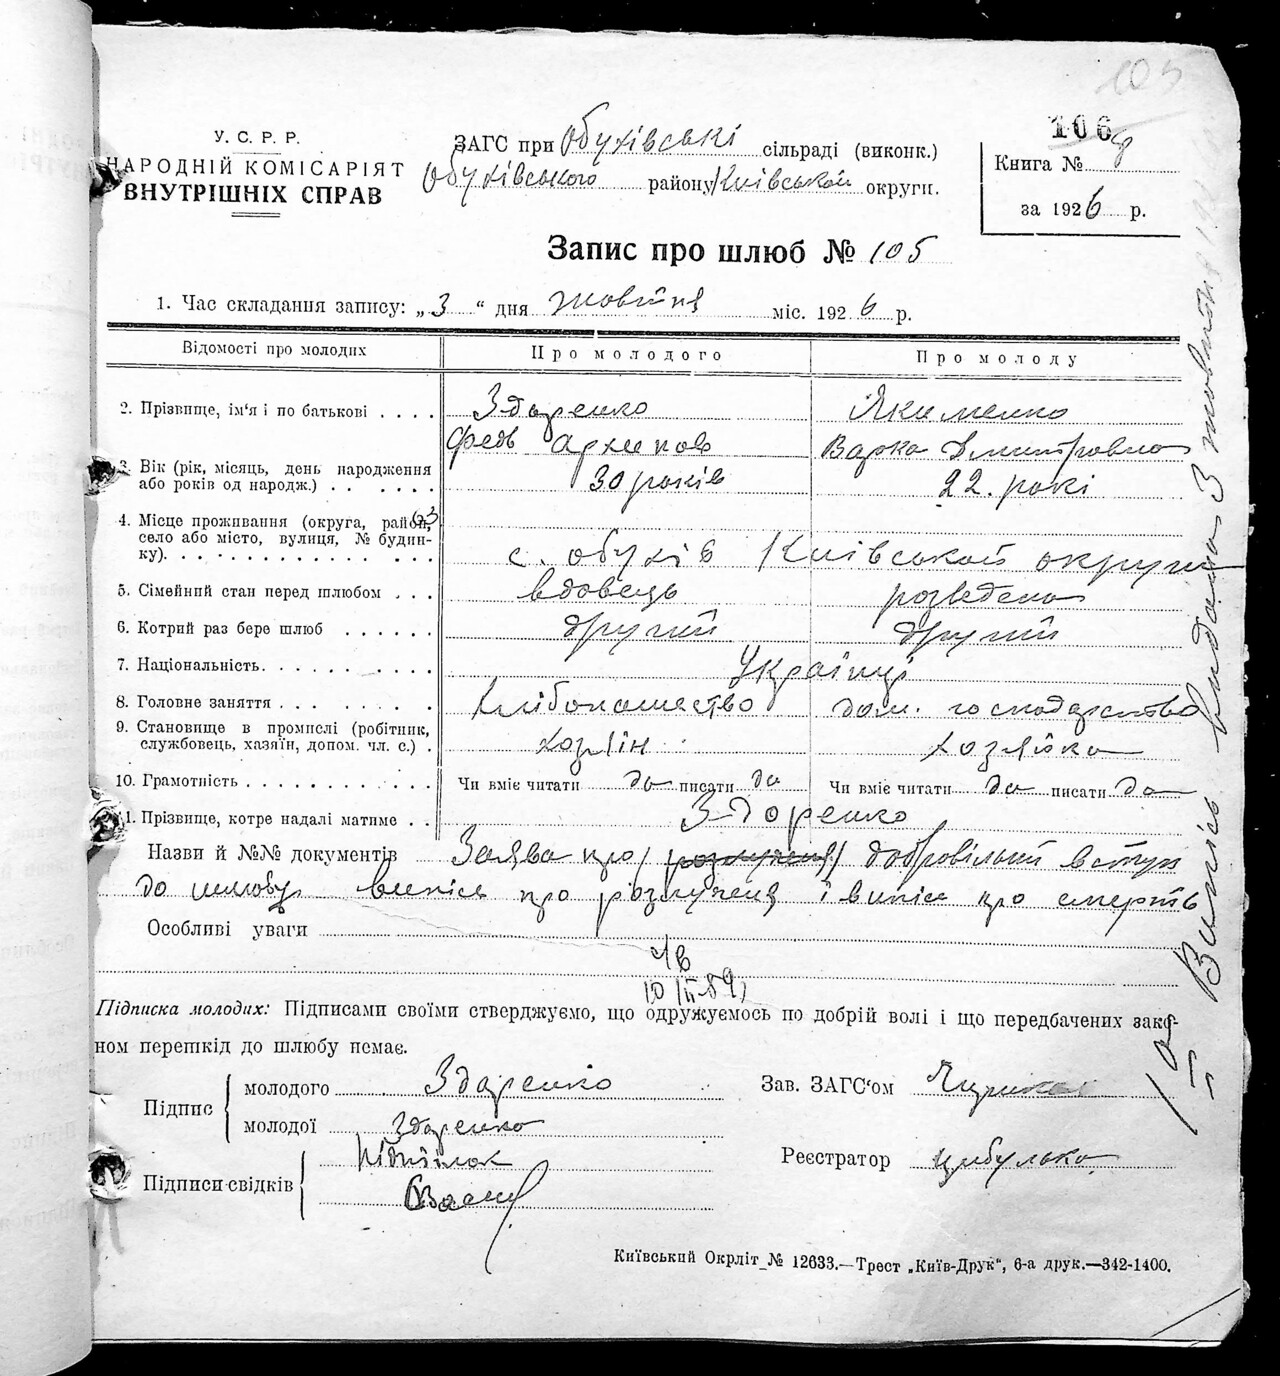 105
106
У. С. Р. Р.
НАРОДНІЙ КОМІСАРІЯТ
ВНУТРІШНІХ СПРАВ
ЗАГС при Обухівські сільраді (виконк.)
Обухівського району Київської округи.
Книга № 8
за 1926 р.
Запис про шлюб № 105
1. Час складання запису: „3“ дня жовтня міс. 1926 р.
Відомості про молодих
Про молодого
Про молоду
2. Прізвище, ім'я і по батькові . . . .
Здоренко
Якименко
Федь Архипов
Варка Дмитровна
3. Вік (рік, місяць, день народження
або років од народж.) . . . . . .
30 років
22. рокі
4. Місце проживання (округа, район,
село або місто, вулиця, № будин-
ку). . . . . . . . . . . . . . .
с. Обухів Київськой округи
5. Сімейний стан перед шлюбом . . .
вдовець
розведена
6. Котрий раз бере шлюб . . . . . .
другий
другий
7. Національність. . . . . . . . . .
Українці
8. Головне заняття . . . . . . . .
хлібопашество
дом. господарство
9. Становище в промислі (робітник,
службовець, хазяїн, допом. чл. с.) .
хозяїн
хозяйка
10. Грамотність . . . . . . . . . . .
Чи вміє читати да писати да
Чи вміє читати да писати да
11. Прізвище, котре надалі матиме . .
Здоренко
Назви й №№ документів Заява про розлучення добровільний вступ
до шлюбу випіс про розлученя і випіс про смерть
Особливі уваги
Підписка молодих: Підписами своїми стверджуємо, що одружуємось по добрій волі і що передбачених зако-
ном перешкід до шлюбу немає.
Підпис
молодого Здоренко
молодої Здоренко
Зав. ЗАГС'ом
Підписи свідків
Реєстратор Цибулько
Випісь видано 3 жовтня
Київський Окрліт № 12633.—Трест „Київ-Друк“, 6-а друк.—342-1400.